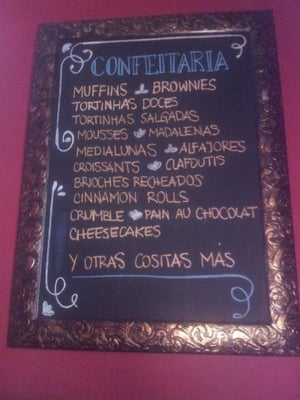 CONFEITARIA
MUFFINS BROWNIES
TORTINHAS DOCES
TORTINHAS SALGADAS
MOUSSES MADALENAS
MEDIALUNAS ALFAJORES
CROISSANTS CLAFOUTIS
BRIOCHES RECHEADOS
CINNAMON ROLLS
CRUMBLE PAIN AU CHOCOLAT
CHEESECAKES
Y OTRAS COSITAS MÁS